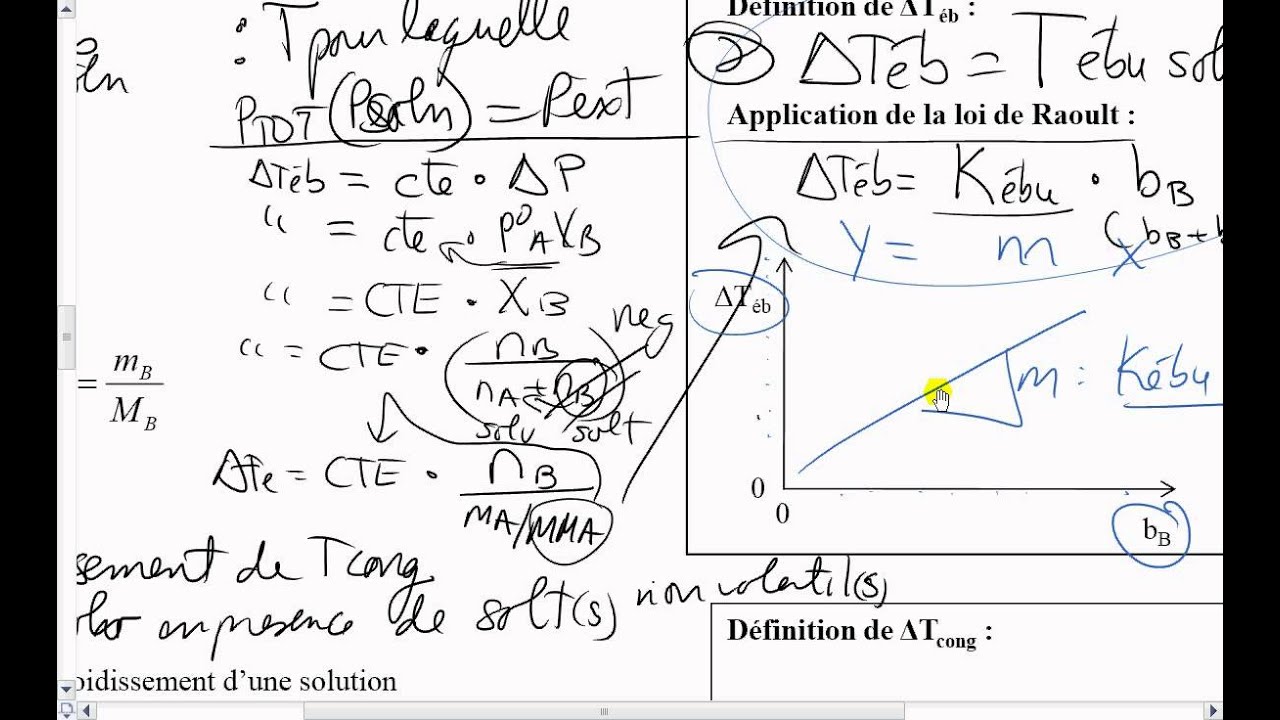 : T pour laquelle
PTOT (Psoln) = Pext
ΔTéb = cte · ΔP
" = cte · P°A XB
" = CTE · XB
" = CTE · nB / nA + nB neg
solv solt
ΔTe = CTE · nB / mA/MMA
= mB / MB
sement de Tcong
en presence de solt(s) non volatil(s)
oidissement d'une solution
Définition de ΔTéb :
2) ΔTéb = Tébu sol
Application de la loi de Raoult :
ΔTéb = Kébu · bB
(bB + b
y = m x
ΔTéb
m : Kébu
0
0
bB
Définition de ΔTcong :